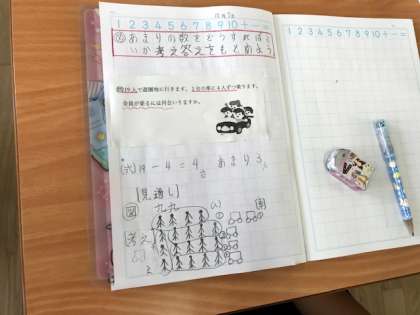 1 2 3 4 5 6 7 8 9 10 + − =
あまりの数をどうすればよ
いか考え答えをもとめよう
19人で遊園地に行きます。1台の車に4人ずつ乗ります。
全員が乗るには何台いりますか。
(式) 19 ÷ 4 = 4 あまり 3
台 人
[見通し]
図 九九
考え
1 2 3 4 5 6 7 8 9 10 + − =